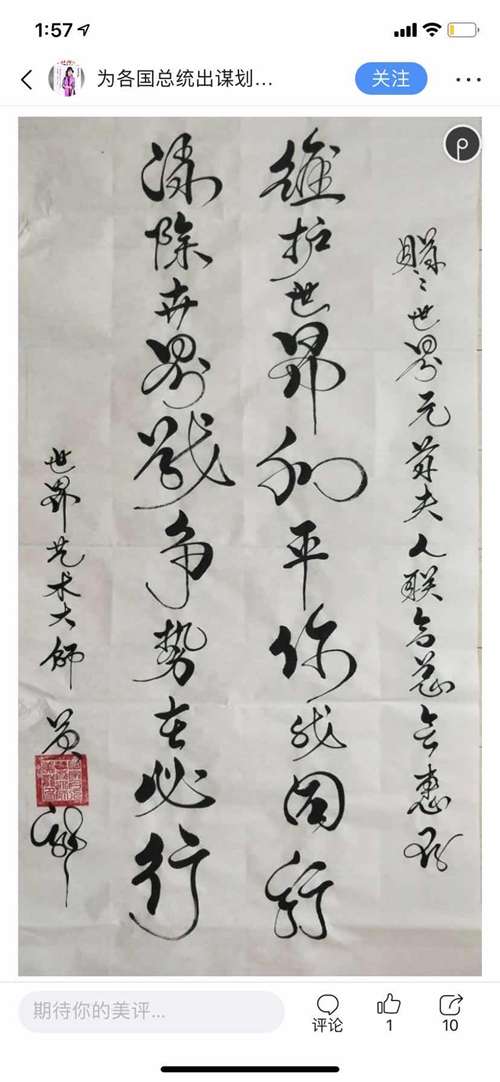 1:57
为各国总统出谋划...
关注
赠世界元首夫人联合总会惠存
维护世界和平你我同行
除世界战争势在必行
世界艺术大师
期待你的美评...
评论
1
10